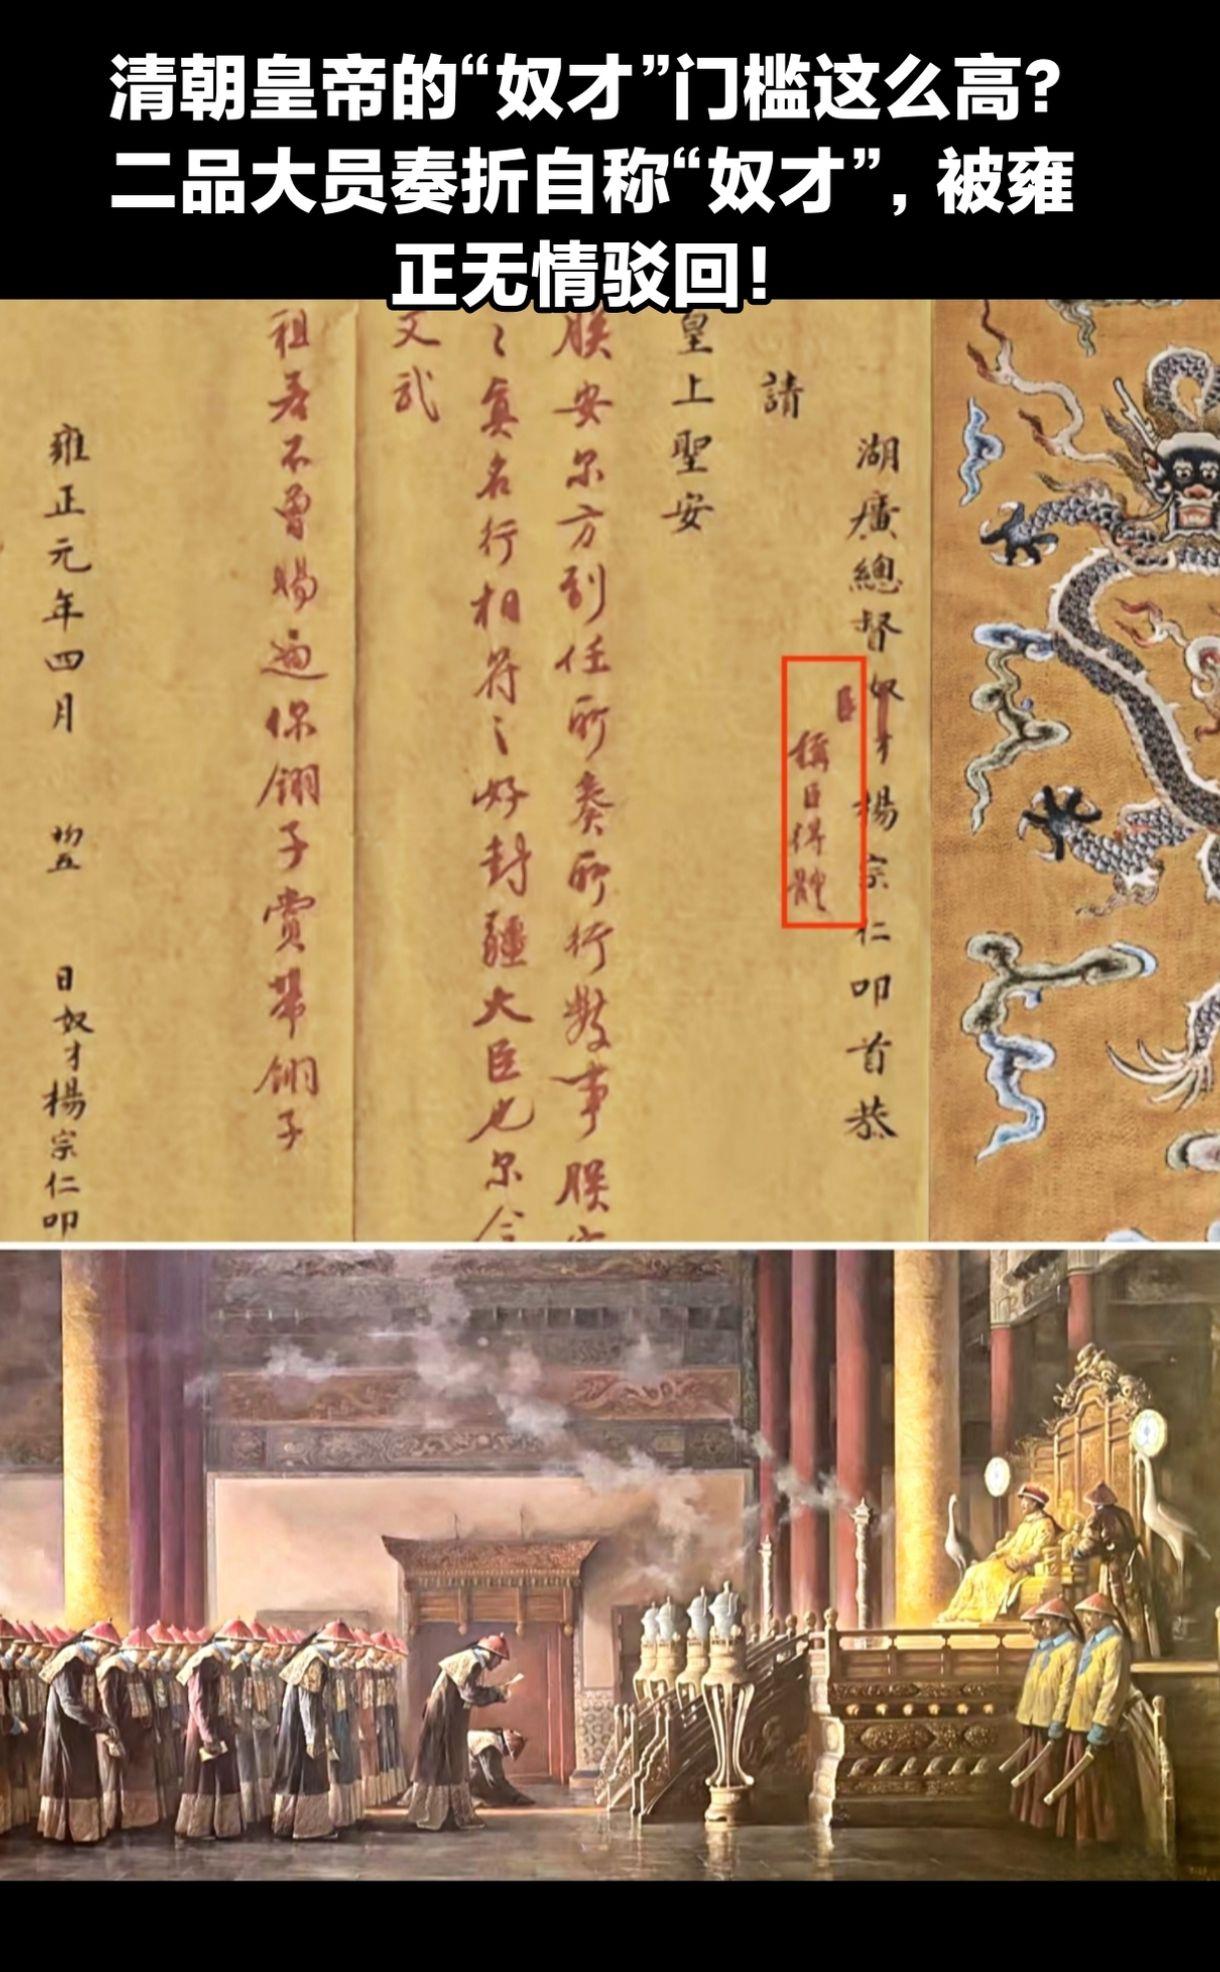 清朝皇帝的“奴才”门槛这么高？
二品大员奏折自称“奴才”，被雍
正无情驳回！
湖廣總督奴才楊宗仁叩首恭
臣
稱臣得體
請
皇上聖安
朕安尔方到任所奏所行數事朕
〻真名行相符〻好封疆大臣也尔今
文武
祖若不曾賜過你翎子賞帶翎子
雍正元年四月 初五 日奴才楊宗仁叩